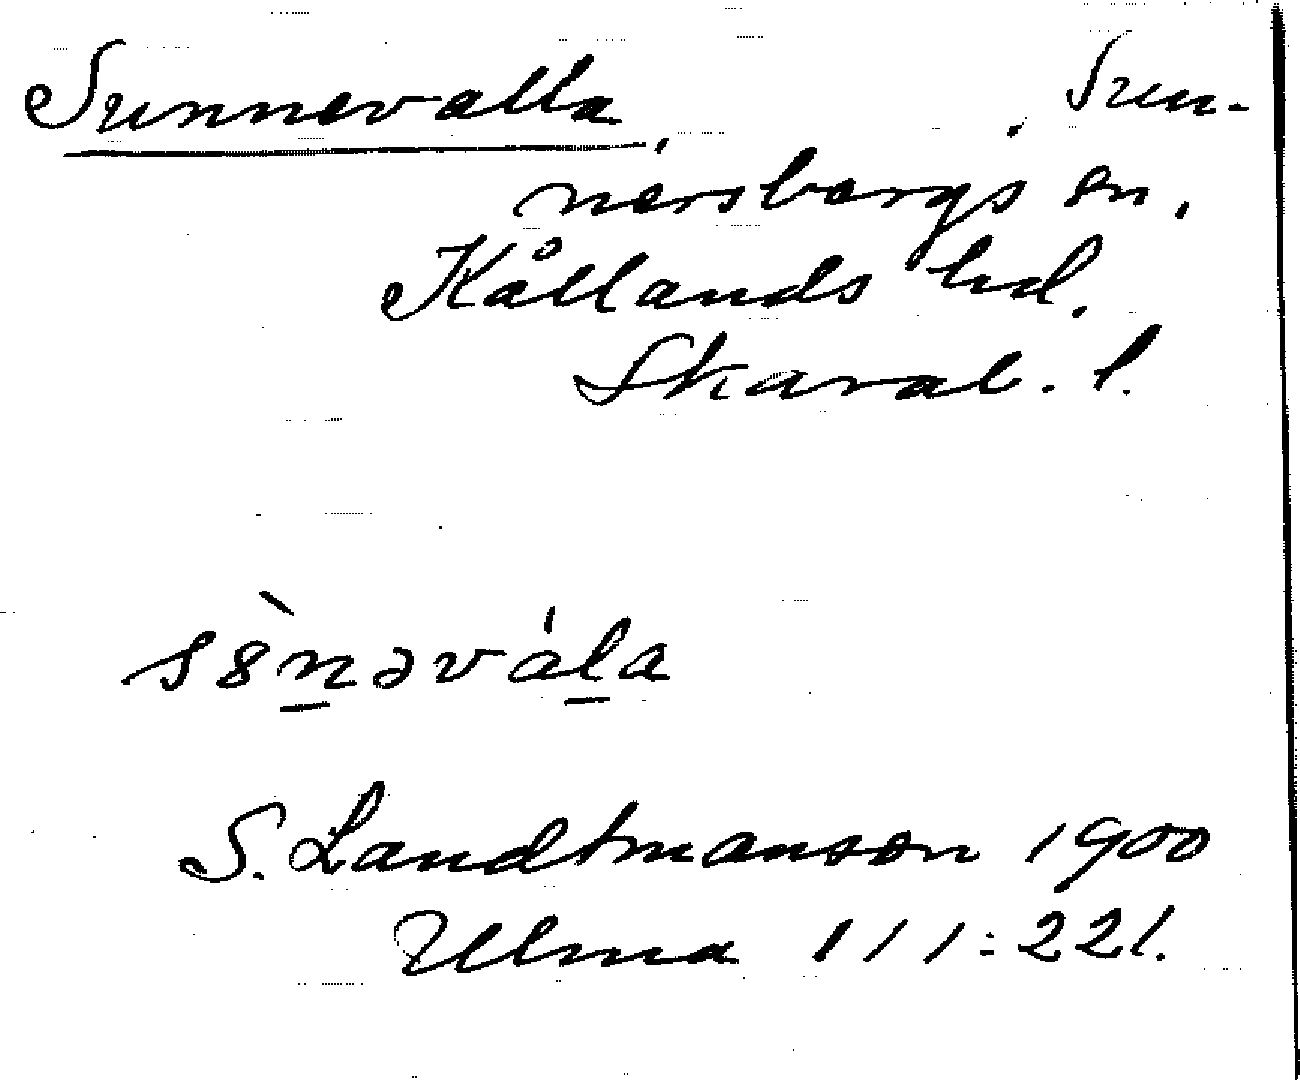 Sunnevalla, Sun-
nersbergs sn,
Kållands hd.
Skarab. l.
s8̀nəvála
S. Landtmanson 1900
Ulma 111:221.